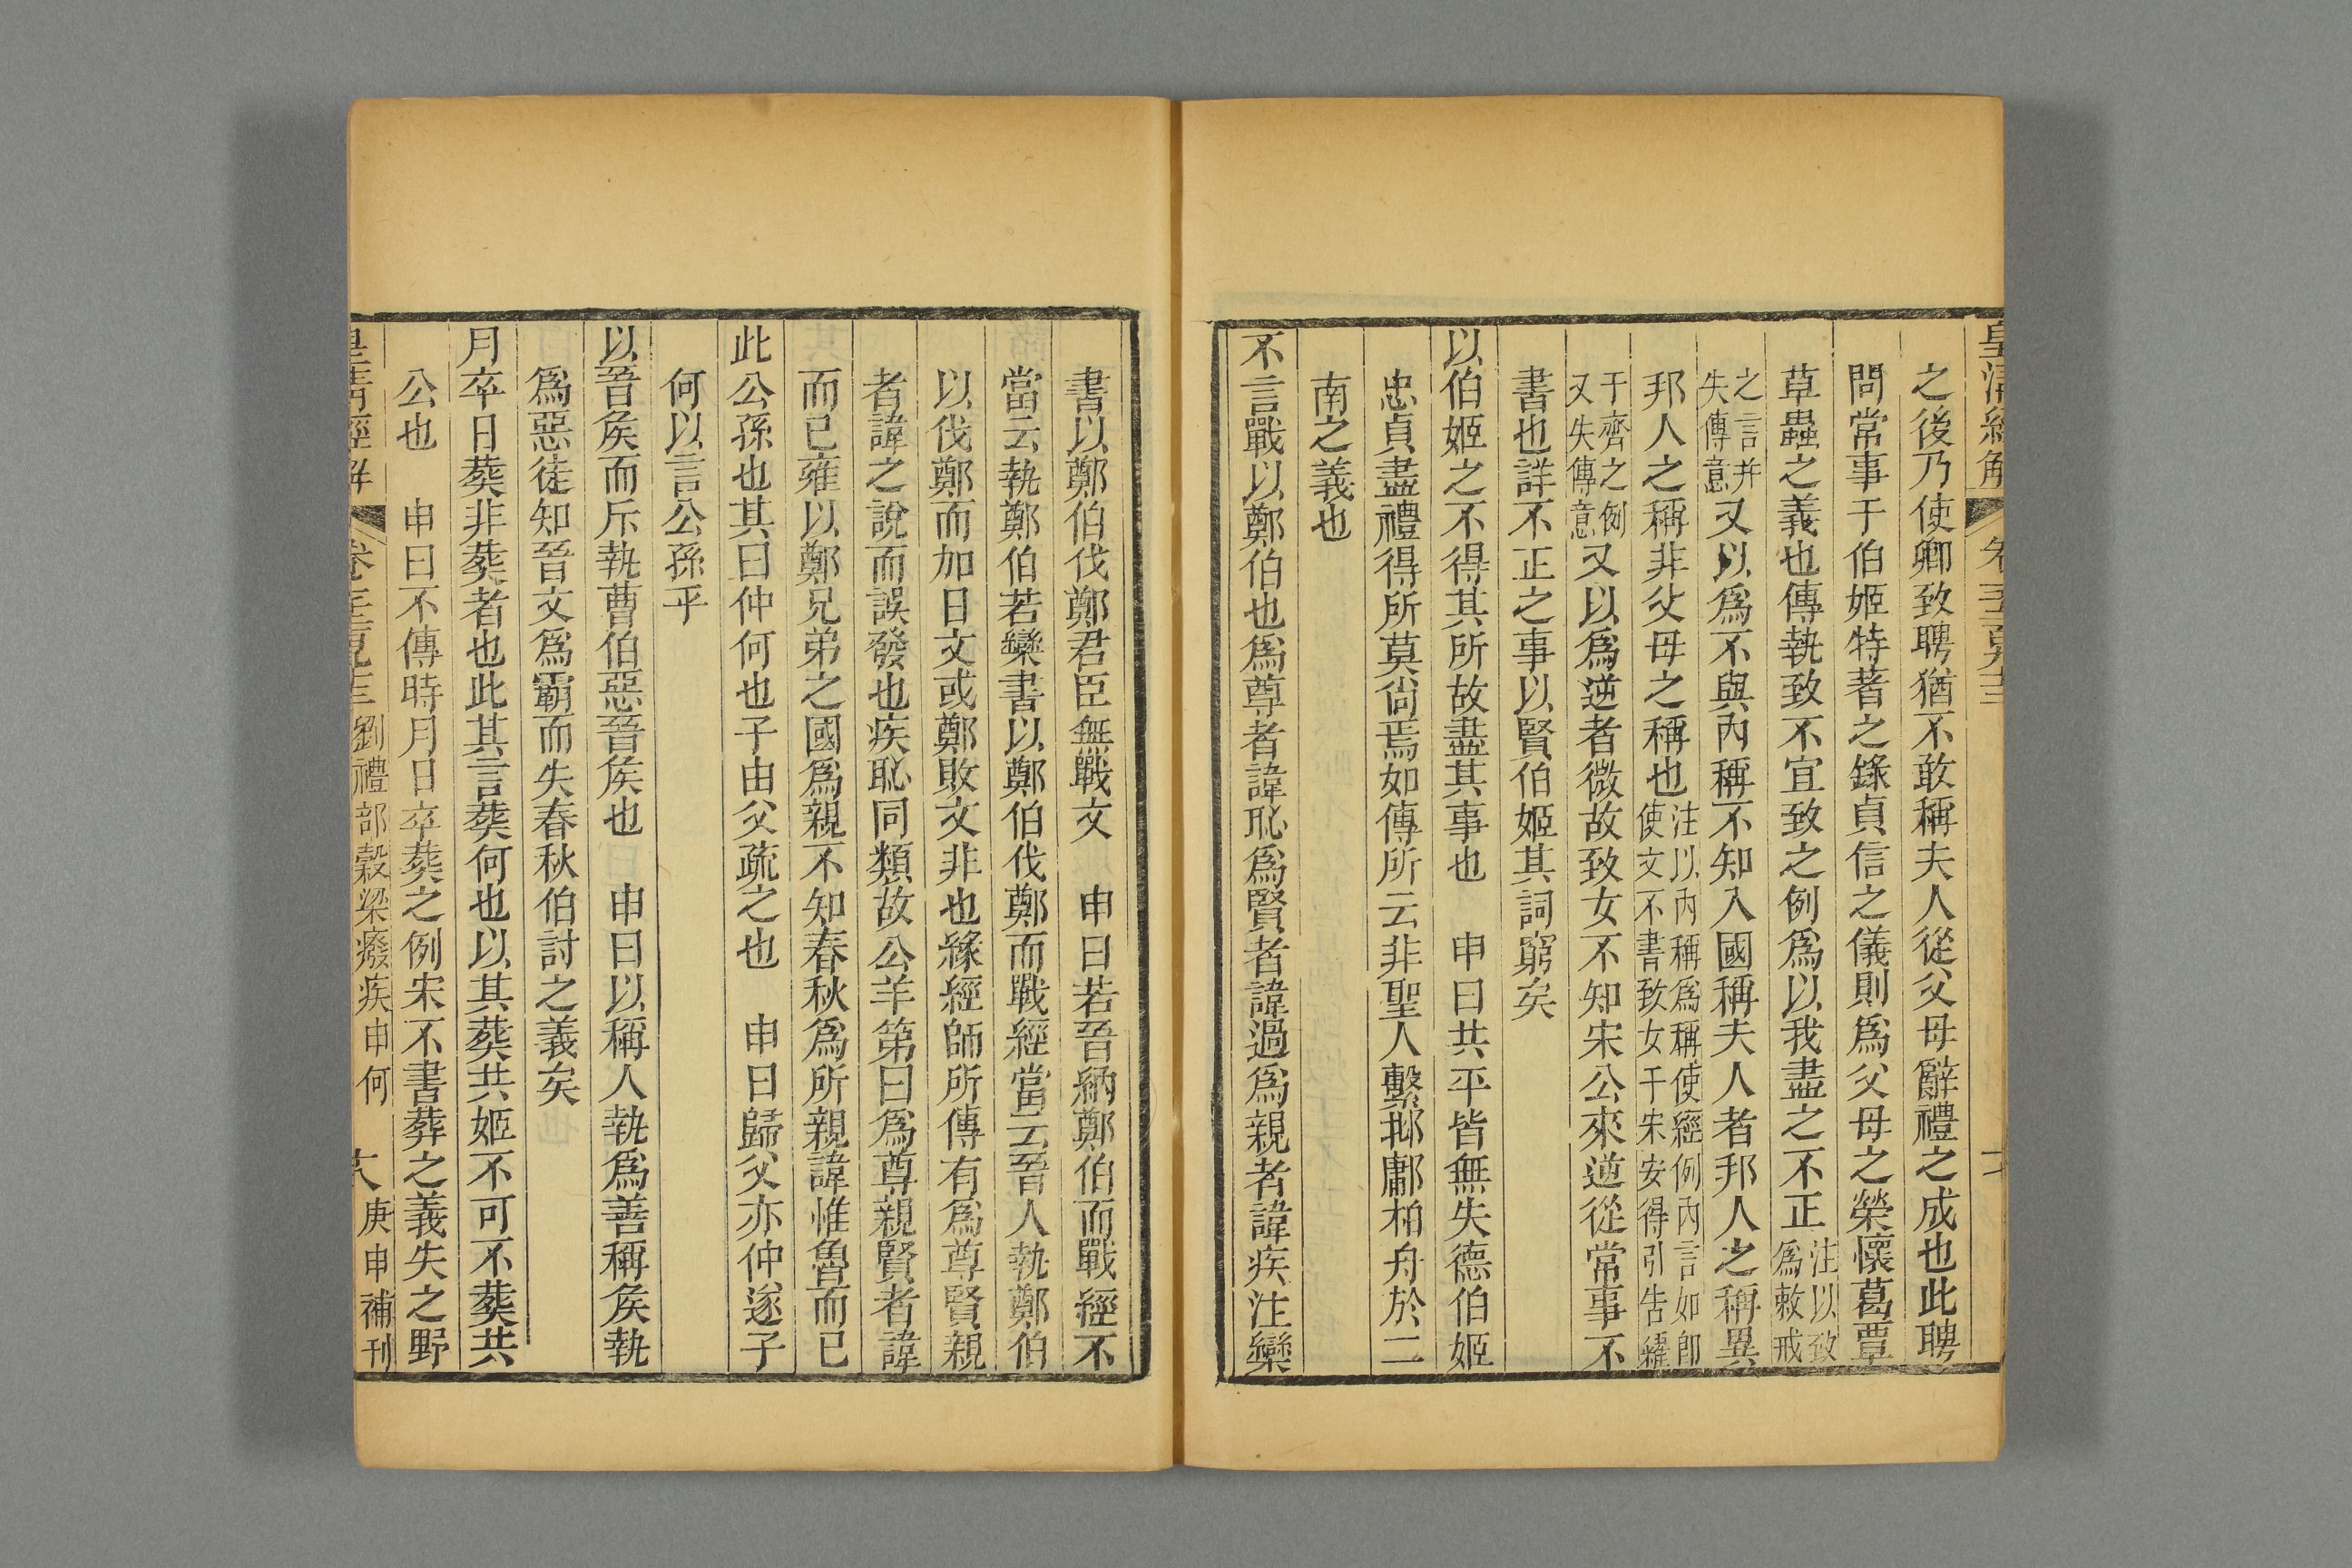 皇清經解
之後乃使卿致聘猶不敢稱夫人從父母辭禮之成也此聘
問常事于伯姬特著之錄貞信之儀則爲父母之榮懷葛覃
草蟲之義也傳執致不宜致之例爲以我盡之不正注以致爲敕戒
之言并失傳意又以爲不與內稱不知入國稱夫人者邦人之稱異
邦人之稱非父母之稱也注以內稱爲稱使經例內言如卽使文不書致女于宋安得引吿糴
于齊之例又失傳意又以爲逆者微故致女不知宋公來逆從常事不
書也詳不正之事以賢伯姬其詞窮矣
以伯姬之不得其所故盡其事也　申曰共平皆無失德伯姬
忠貞盡禮得所莫尙焉如傳所云非聖人繫邶鄘柏舟於二
南之義也
不言戰以鄭伯也爲尊者諱恥爲賢者諱過爲親者諱疾注欒
書以鄭伯伐鄭君臣無戰文　申曰若晉納鄭伯而戰經不
當云執鄭伯若欒書以鄭伯伐鄭而戰經當云晉人執鄭伯
以伐鄭而加日文或鄭敗文非也緣經師所傳有爲尊賢親
者諱之說而誤發也疾恥同類故公羊第曰爲尊親賢者諱
而已雍以鄭兄弟之國爲親不知春秋爲所親諱惟魯而已
此公孫也其曰仲何也子由父疏之也　申曰歸父亦仲遂子
何以言公孫乎
以晉矦而斥執曹伯惡晉矦也　申曰以稱人執爲善稱矦執
爲惡徒知晉文爲霸而失春秋伯討之義矣
月卒日葬非葬者也此其言葬何也以其葬共姬不可不葬共
公也　申曰不傳時月日卒葬之例宋不書葬之義失之野
皇清經解　劉禮部穀梁癈疾申何　庚申補刊